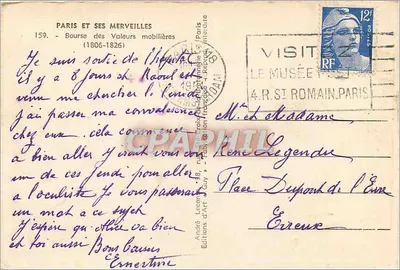 PARIS ET SES MERVEILLES
159. - Bourse des Valeurs mobilières
(1806-1826)
Je suis sortie de l'hopital
il y a 8 jours et Raoul est
venu me chercher le
j'ai passer ma convalescence
chez eux. cela commence
a bien aller Je irait vous voir
un de ces jeudi pour aller
a l'oculiste Je vous passerait
un mot a ce sujet
J'espère que Alice va bien
et toi aussi Bons baisers
Ernestine
André Leconte, 38,
Editions d'Art "Guy"
12F
RF
POSTES
VISITEZ
LE MUSÉE POSTAL
4.R.ST ROMAIN.PARIS
Mr et Madame
René Legendre
Place Dupont de l'Eure
Evreux
CPAPHIL